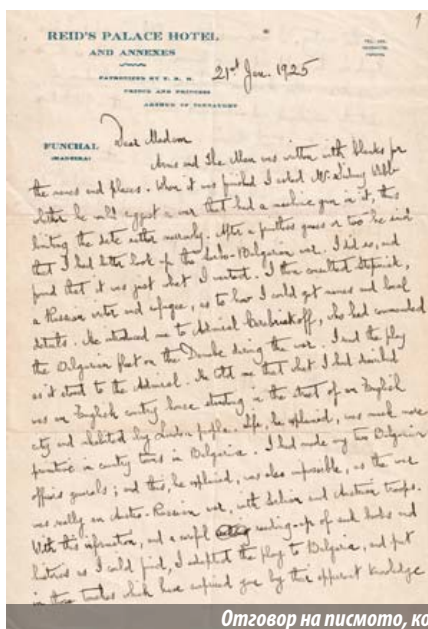 1
REID'S PALACE HOTEL
AND ANNEXES
PATRONIZED BY T. R. H.
PRINCE AND PRINCESS
ARTHUR OF CONNAUGHT
21st Jan. 1925
FUNCHAL
(MADEIRA)
Dear Madam
Arms and The Man was written with blanks for
the names and places. When it was finished I asked Mr. Sidney Webb
whether he could suggest a war that had a machine gun in it, this
limiting the date rather narrowly. After a guess or two he said
that I had better look up the Servo-Bulgarian war. I did so, and
found that it was just what I wanted. I then consulted Stepniak,
a Russian writer and refugee, as to how I could get names and local
details. He introduced me to Admiral who had commanded
the Bulgarian fleet on the Danube during the war. I read the play
as it stood to the Admiral. He told me that what I had described
was an English country house standing in the street of an English
city and inhabited by London people. Life, he explained, was much more
in country towns in Bulgaria. I had made my two Bulgarian
officers generals; and this, he explained, was also impossible, as the war
was really an Austro-Russian war, with Servian and troops.
With this information, and a careful reading-up of such books and
histories as I could find, I adapted the play to Bulgaria, and put
in those touches which have surprised you by their apparent knowledge
Отговор на писмото, ко